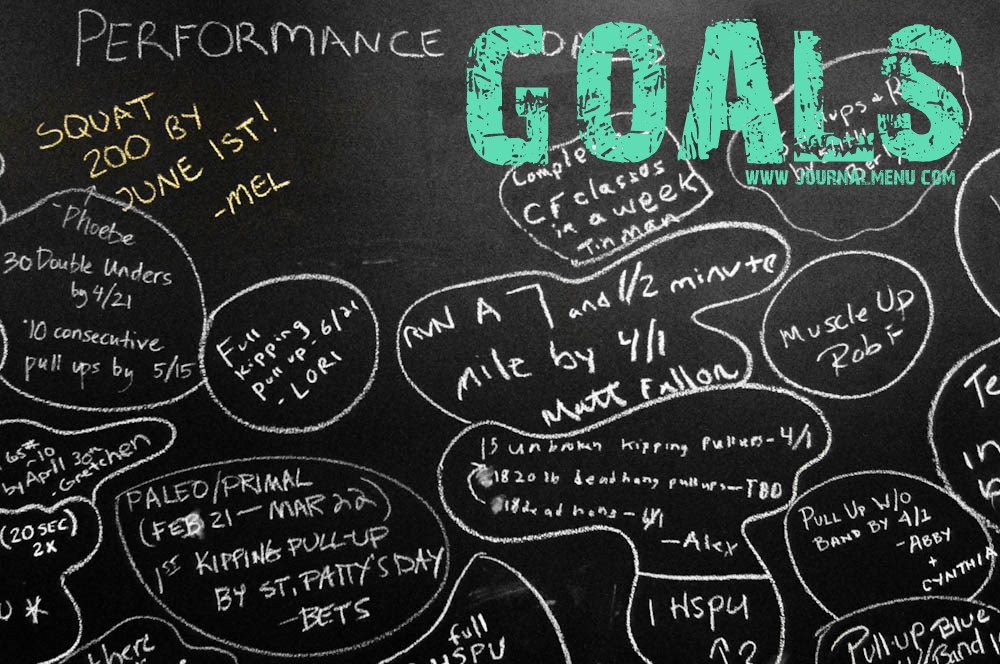 PERFORMANCE
GOALS
WWW JOURNALMENU COM
SQUAT
200 BY
JUNE 1ST!
-MEL
-Phoebe
30 Double Unders
by 4/21
10 consecutive
pull ups by 5/15
Full
Kipping
Pull up - 6/21
- LORI
CF classes
in a week
Tin man
RUN A 7 and 1/2 minute
mile by 4/1
Matt Fallon
Muscle Up
Rob F
65#
by April 30th
- Gretchen
(20 SEC)
2X
U *
PALEO/PRIMAL
(FEB 21 - MAR 22)
1ST KIPPING PULL-UP
BY ST. PATTY'S DAY
-BETS
15 unbroken kipping pullups - 4/1
20 lb deadhang pullups - TBD
- Alex
1 HSPU
PULL UP W/O
BAND BY 4/1
- ABBY
+
CYNTHIA
Pull-up Blue
Band
full
HSPU
there
Te
in